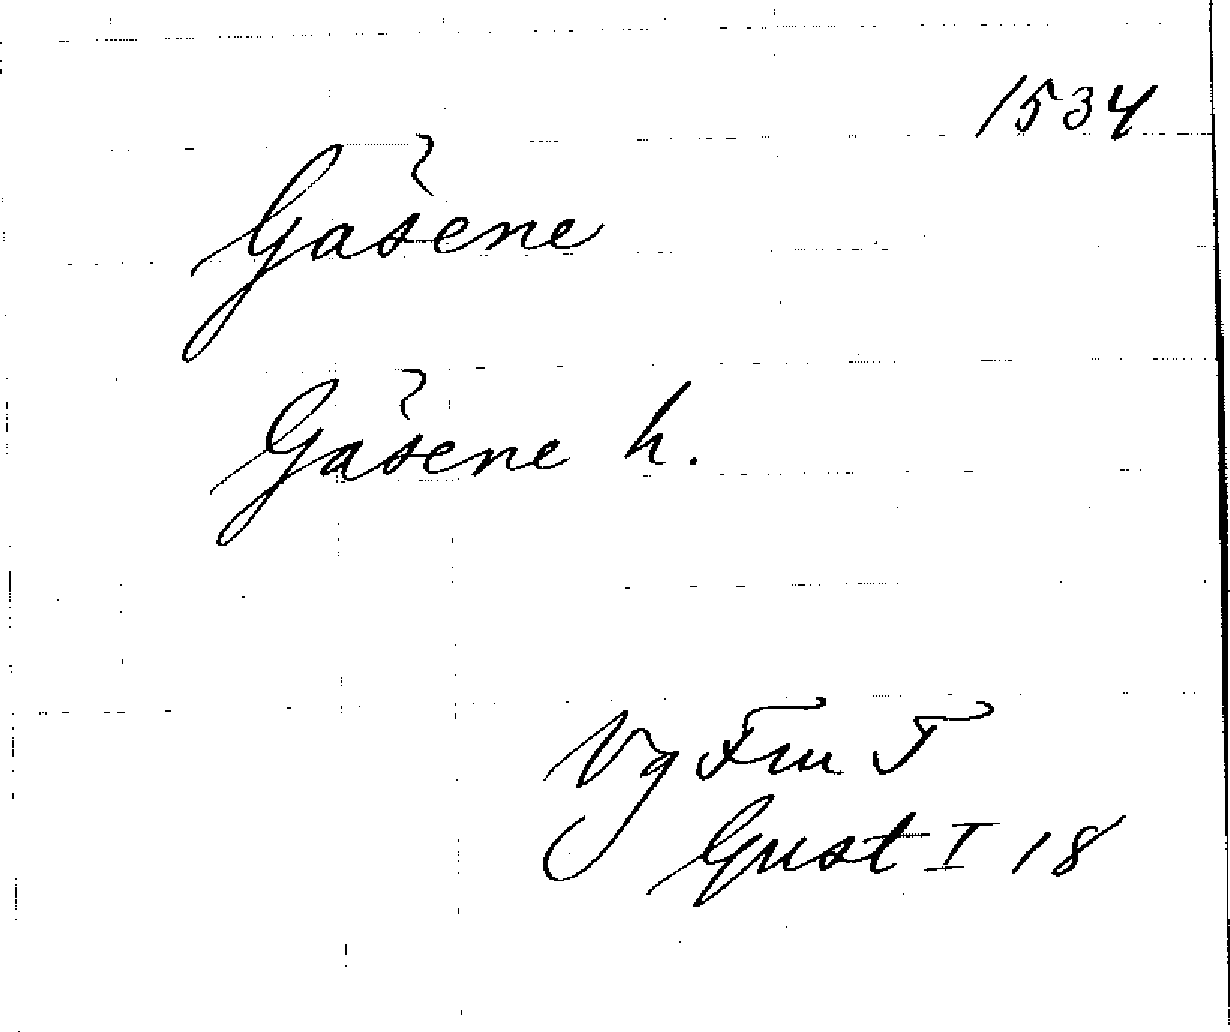 1534
Gäsene
Gäsene h.
Vg Fm T
Gust I 18